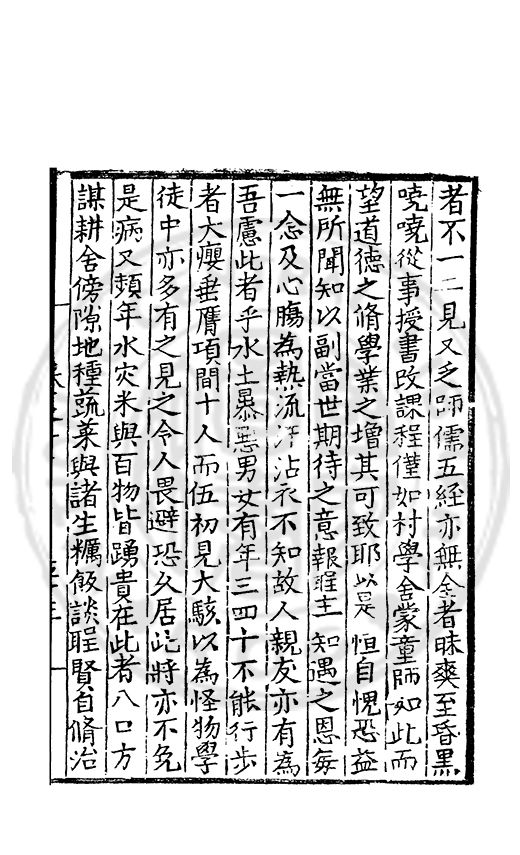 者不一二見又乏師儒五經亦無全者昧爽至昏黒
嘵嘵從事授書改課程僅如村學舍蒙童師如此而
望道德之脩學業之增其可致耶以是恒自愧恐益
無所聞知以副當世期待之意報聖主知遇之恩每
一念及心膓為熱流汗沾衣不知故人親友亦有為
吾慮此者乎水土暴惡男女有年三四十不能行步
者大癭垂膺項間十人而伍初見大駭以為怪物學
徒中亦多有之見之令人畏避恐乆居此將亦不免
是病又頻年水灾米與百物皆踴貴在此者八口方
謀耕舍傍隙地種蔬菜與諸生糲飯談聖賢自脩治